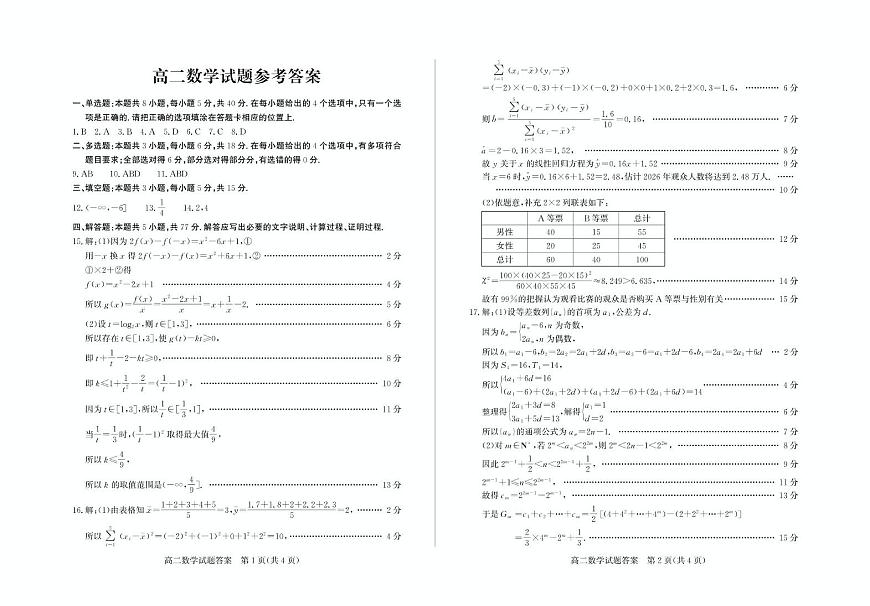 高二数学试题参考答案
一、单选题:本题共 8 小题,每小题 5 分,共 40 分. 在每小题给出的 4 个选项中,只有一个选
项是正确的. 请把正确的选项填涂在答题卡相应的位置上.
1. B 2. A 3. B 4. A 5. D 6. C 7. C 8. D
二、多选题:本题共 3 小题,每小题 6 分,共 18 分. 在每小题给出的 4 个选项中,有多项符合
题目要求;全部选对得 6 分,部分选对得部分分,有选错的得 0 分.
9. AB 10. ABD 11. ABD
三、填空题:本题共 3 小题,每小题 5 分,共 15 分.
12. (-∞,-6] 13. 1/4 14. 2,4
四、解答题:本题共 5 小题,共 77 分. 解答应写出必要的文字说明、计算过程、证明过程.
15. 解:(1)因为 2f(x)-f(-x)=x²-6x+1,①
用-x 换 x 得 2f(-x)-f(x)=x²+6x+1,② …… 2 分
①×2+②得
f(x)=x²-2x+1 …… 4 分
所以 g(x)=f(x)/x=(x²-2x+1)/x=x+1/x-2. …… 5 分
(2)设 t=log₂x,则 t∈[1,3], …… 6 分
所以存在 t∈[1,3],使 g(t)-kt≥0,
即 t+1/t-2-kt≥0, …… 8 分
即 k≤1+1/t²-2/t=(1/t-1)², …… 10 分
因为 t∈[1,3],所以 1/t∈[1/3,1], …… 11 分
当 1/t=1/3 时,(1/t-1)² 取得最大值 4/9,
所以 k≤4/9,
所以 k 的取值范围是(-∞,4/9]. …… 13 分
16. 解:(1)由表格知 x̄=(1+2+3+4+5)/5=3,ȳ=(1.7+1.8+2+2.2+2.3)/5=2, …… 2 分
所以 ∑(i=1→5)(xᵢ-x̄)²=(-2)²+(-1)²+0+1²+2²=10, …… 4 分
高二数学试题答案 第 1 页(共 4 页)
∑(i=1→5)(xᵢ-x̄)(yᵢ-ȳ)
=(-2)×(-0.3)+(-1)×(-0.2)+0×0+1×0.2+2×0.3=1.6, …… 6 分
则 b̂=∑(i=1→5)(xᵢ-x̄)(yᵢ-ȳ)/∑(i=1→5)(xᵢ-x̄)²=1.6/10=0.16, …… 7 分
â=2-0.16×3=1.52, …… 8 分
故 y 关于 x 的线性回归方程为 ŷ=0.16x+1.52 …… 9 分
当 x=6 时,ŷ=0.16×6+1.52=2.48,估计 2026 年观众人数将达到 2.48 万人. ……
…… 10 分
(2)依题意,补充 2×2 列联表如下:
A 等票 B 等票 总计
男性 40 15 55
女性 20 25 45
总计 60 40 100
…… 12 分
χ²=100×(40×25-20×15)²/(60×40×55×45)≈8.249>6.635, …… 14 分
故有 99%的把握认为观看比赛的观众是否购买 A 等票与性别有关 …… 15 分
17. 解:(1)设等差数列{aₙ}的首项为 a₁,公差为 d.
因为 bₙ={aₙ-6,n 为奇数, 2aₙ,n 为偶数,
所以 b₁=a₁-6,b₂=2a₂=2a₁+2d,b₃=a₃-6=a₁+2d-6,b₄=2a₄=2a₁+6d … 2 分
因为 S₄=16,T₃=14,
所以{4a₁+6d=16 (a₁-6)+(2a₁+2d)+(a₁+2d-6)+(2a₁+6d)=14 …… 4 分
整理得{2a₁+3d=8 3a₁+5d=13,解得{a₁=1 d=2 …… 6 分
所以{aₙ}的通项公式为 aₙ=2n-1. …… 7 分
(2)对 m∈N*,若 2ᵐ<aₙ<2²ᵐ,则 2ᵐ<2n-1<2²ᵐ, …… 8 分
因此 2ᵐ⁻¹+1/2<n<2²ᵐ⁻¹+1/2, …… 9 分
2ᵐ⁻¹+1≤n≤2²ᵐ⁻¹, …… 11 分
故得 cₘ=2²ᵐ⁻¹-2ᵐ⁻¹, …… 13 分
于是 Gₘ=c₁+c₂+…+cₘ=1/2[(4+4²+…+4ᵐ)-(2+2²+…+2ᵐ)]
=2/3×4ᵐ-2ᵐ+1/3. …… 15 分
高二数学试题答案 第 2 页(共 4 页)